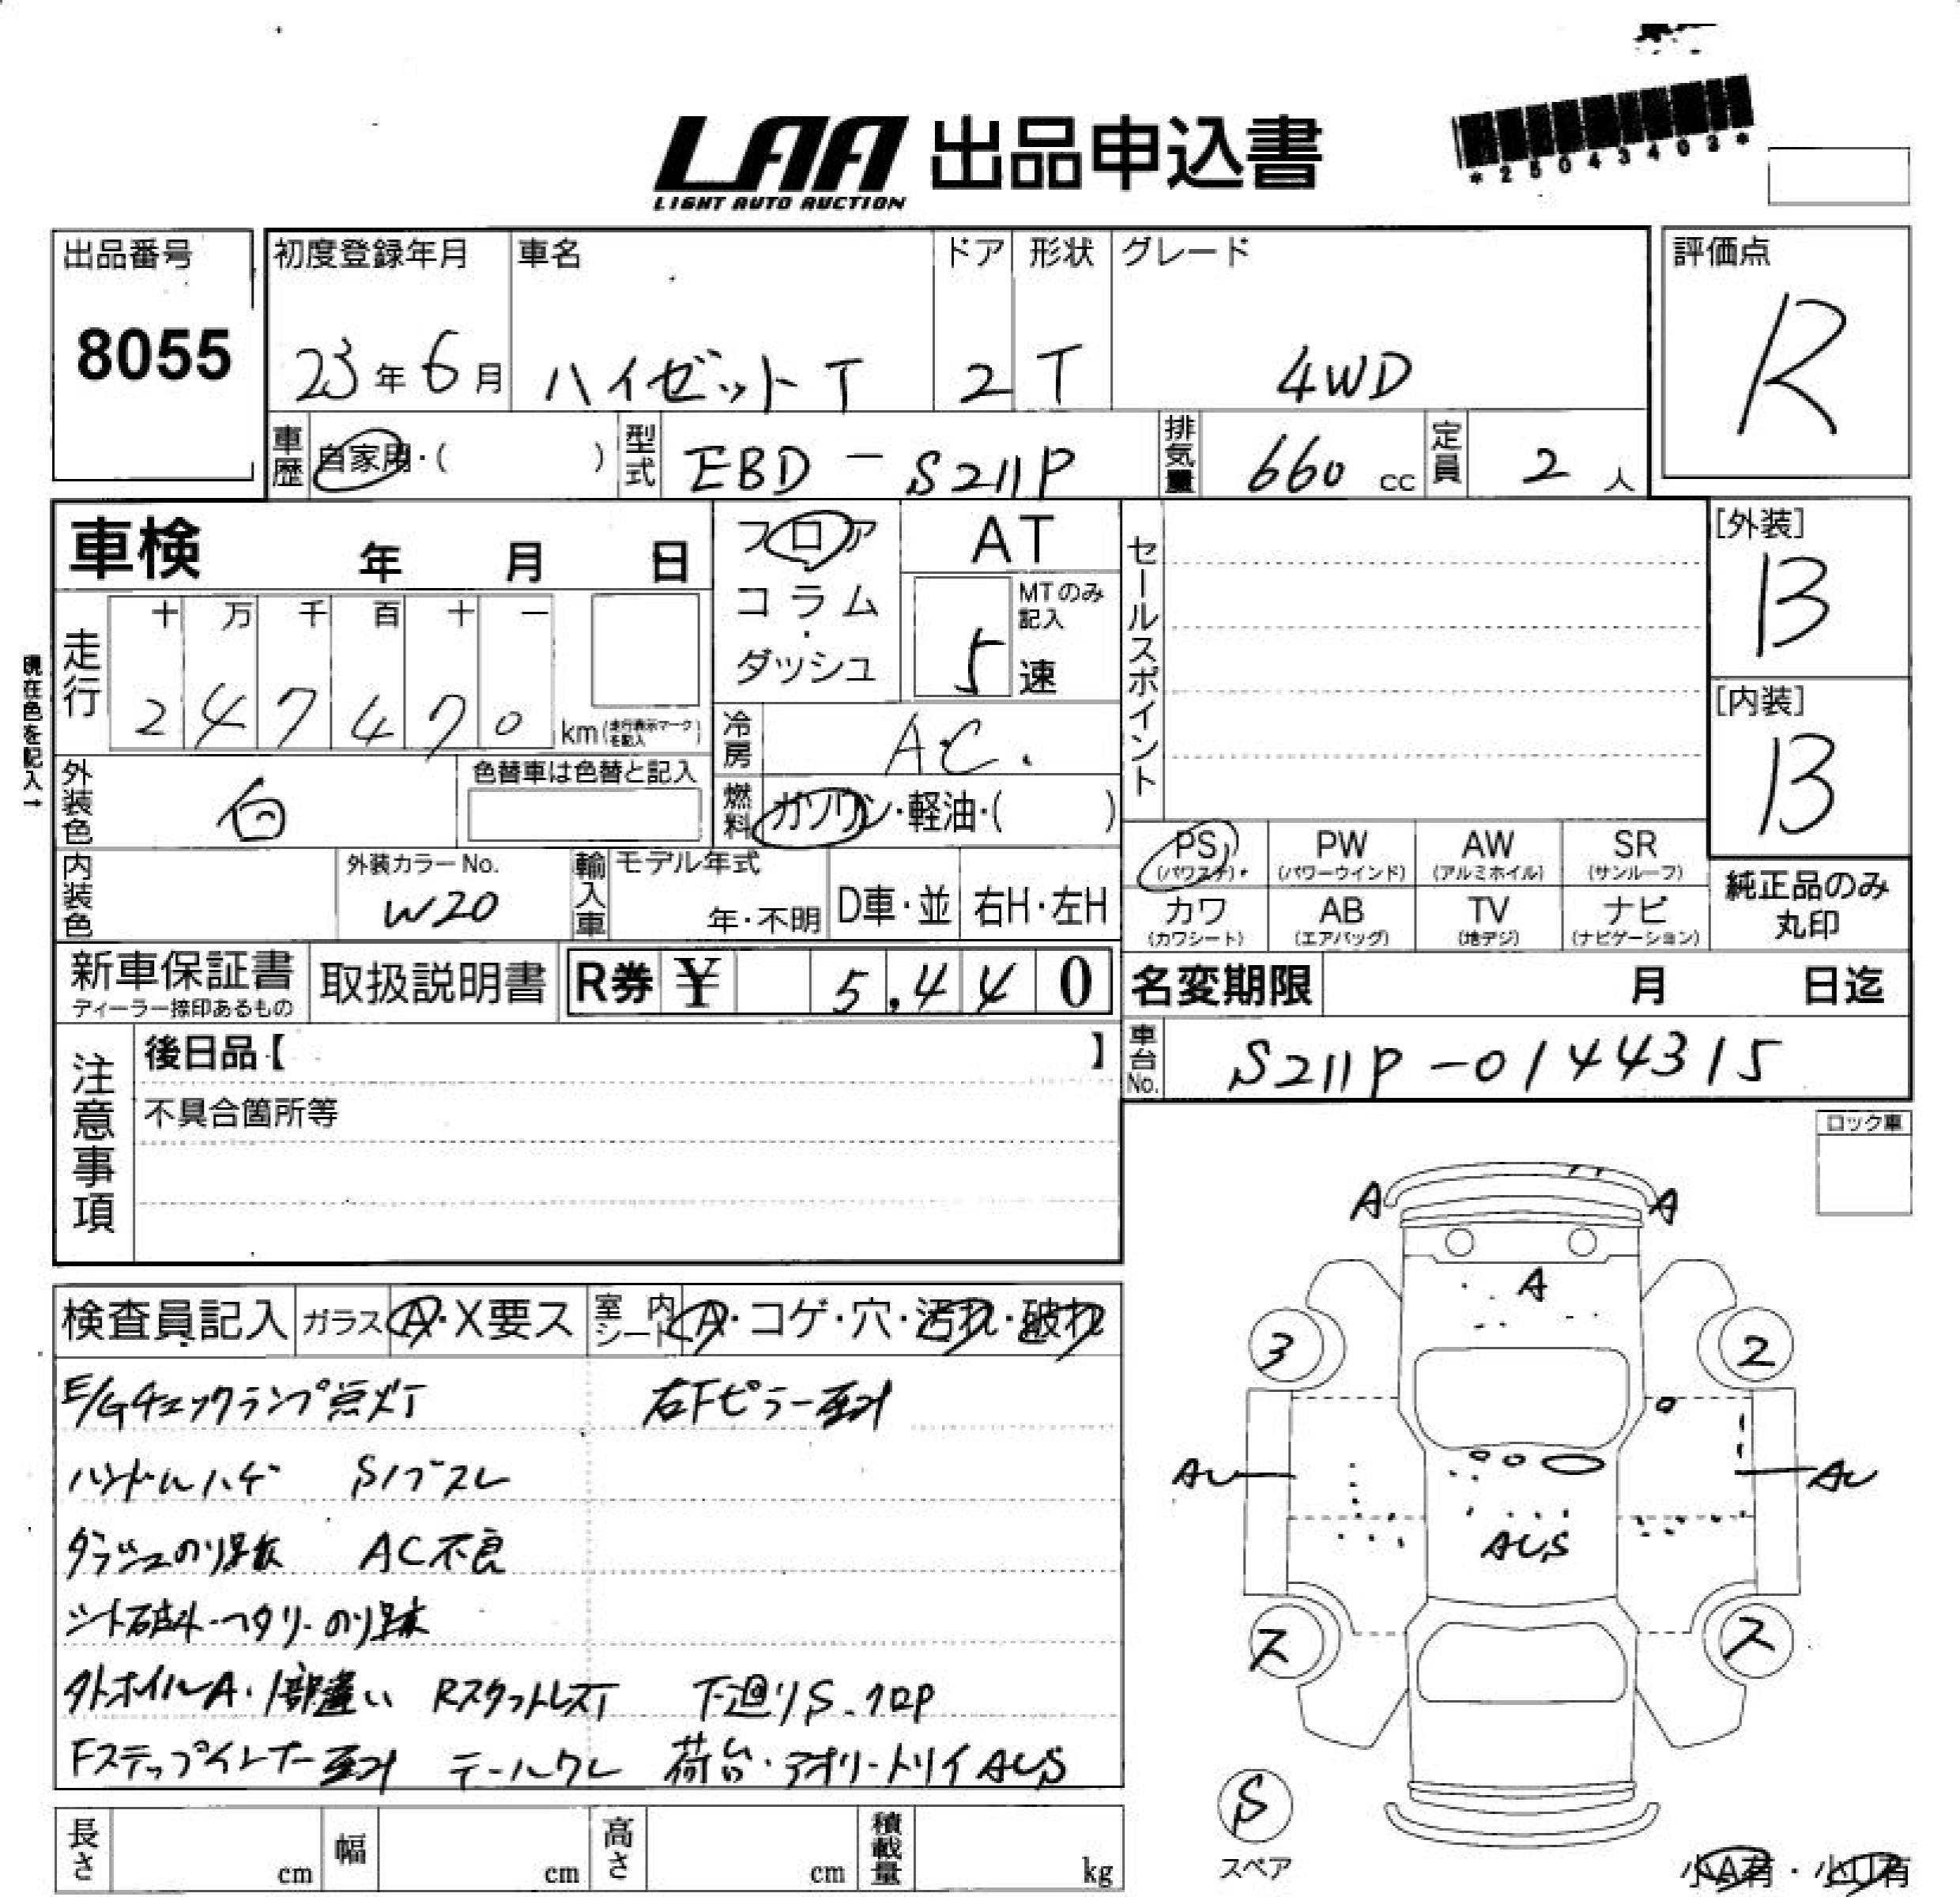 LAA 出品申込書
LIGHT AUTO AUCTION
*25043403*
出品番号
8055
初度登録年月
23年6月
車名
ハイゼットT
ドア
2
形状
T
グレード
4WD
評価点
R
車歴 自家用・( )
型式 EBD-S211P
排気量 660 cc
定員 2 人
車検 年 月 日
フロア
コラム
・
ダッシュ
AT
MTのみ記入
5 速
セールスポイント
[外装]
B
[内装]
B
現在色を記入→
走行
十 万 千 百 十 一
2 4 7 4 7 0 km(走行表示マークを記入)
冷房 AC.
外装色 白
色替車は色替と記入
燃料 ガソリン・軽油・( )
内装色
外装カラーNo.
W20
輸入車
モデル年式
年・不明
D車・並 右H・左H
PS (パワステ)
PW (パワーウインド)
AW (アルミホイル)
SR (サンルーフ)
カワ (カワシート)
AB (エアバッグ)
TV (地デジ)
ナビ (ナビゲーション)
純正品のみ
丸印
新車保証書
ディーラー捺印あるもの
取扱説明書
R券 ¥ 5,440
名変期限 月 日迄
車台No. S211P-0144315
注意事項
後日品【 】
不具合箇所等
ロック車
検査員記入
ガラス A・X要ス
室内シート A・コゲ・穴・汚れ・破れ
E/Gチェックランプ点灯 右Fピラー歪み
ハンドルハゲ Sノブスレ
ダッシュのり跡 AC不良
シート破れ・ヘタリ・のり跡
タイヤホイルA・1部違い RスタッドレスT 下廻りS・クロP
Fステップインナー歪み テールワレ 荷台・アオリ・トリイAUS
A
A
A
3
2
AU
AU
AUS
ス
ス
S
スペア
長さ cm 幅 cm 高さ cm 積載量 kg
小A有・小U有